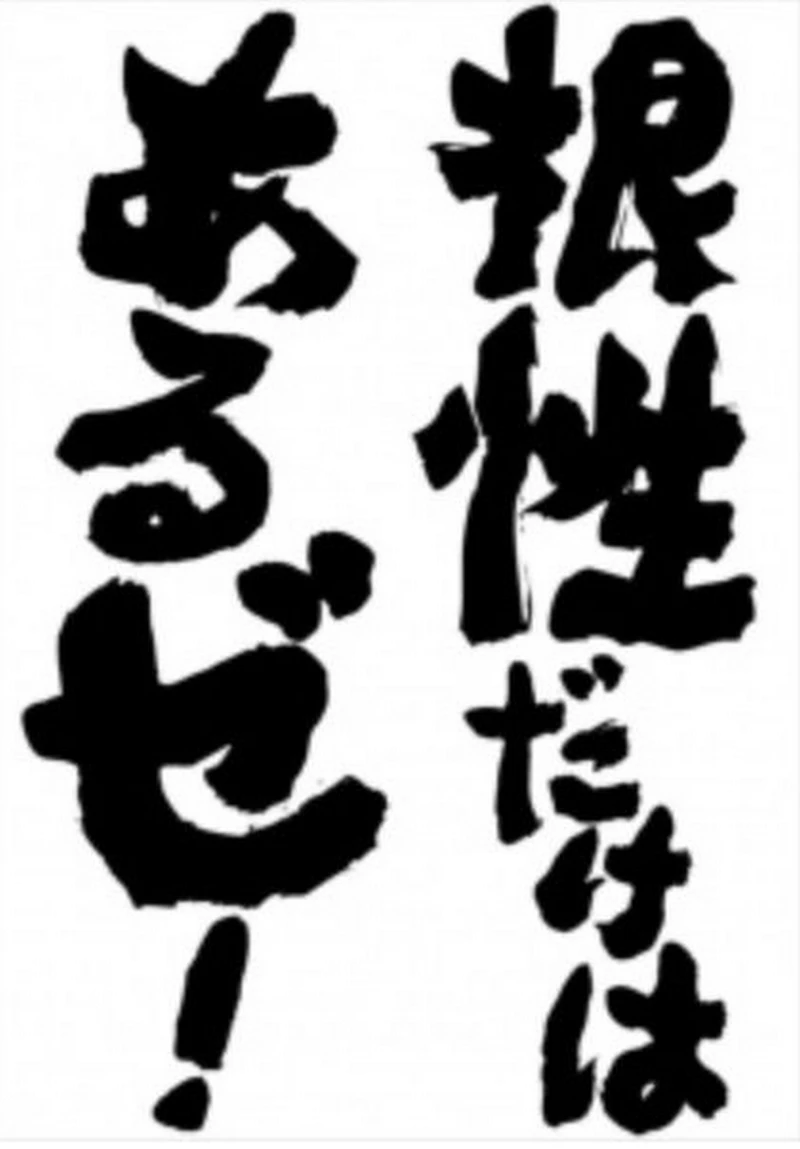 根性だけは
あるゼ!